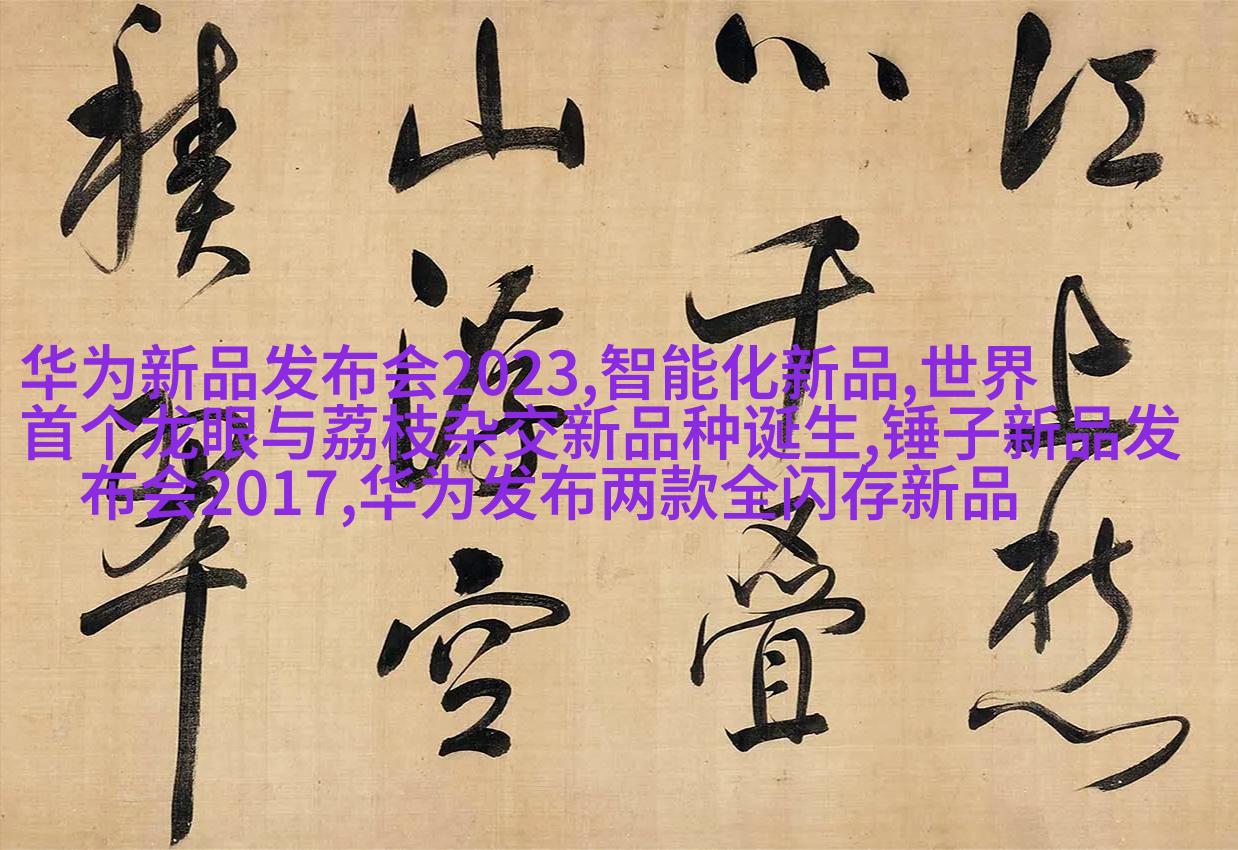 华为新品发布会2023,智能化新品,世界
首个龙眼与荔枝杂交新品种诞生,锤子新品发
布会2017,华为发布两款全闪存新品
江上愁
心千叠
山浮空
積翠